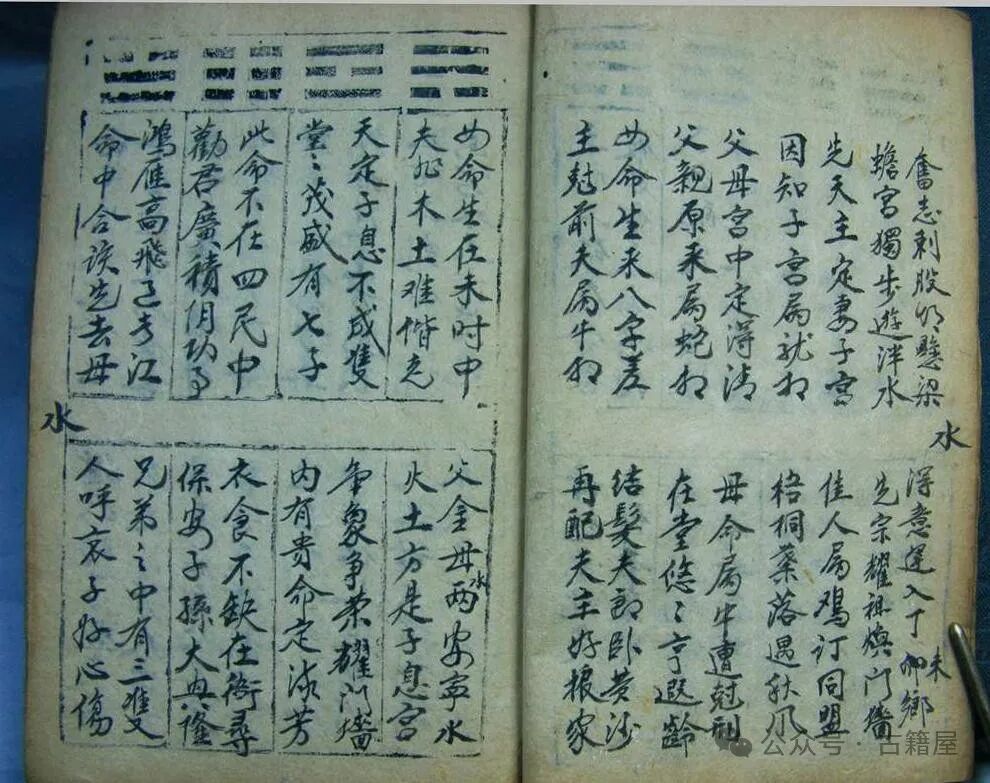 奮志刺股以懸梁
蟾宮獨步遊泮水
先天主定妻子宮
因知子宮屬就相
父母宮中定得清
父親原來屬蛇相
女命生來八字差
主尅前夫屬牛相
水
得意運入丁卯鄉
未
先宗耀祖煥門牆
佳人屬鸡訂同盟
梧桐葉落遇秋风
母命屬牛遭尅刑
在堂悠々亨遐齡
結髮夫郎卧黄沙
再配夫主好根家
女命生在未时中
夫妃木土难偕老
天定子息不成隻
堂々茂盛有七子
此命不在四民中
勸君廣積阴功事
鴻雁高飛过长江
命中合该先去母
水
父金母两安寧水
水
火土方是子息宮
争象争荣耀门墙
内有贵命定流芳
衣食不缺在衙尋
保安子孫大興隆
兄弟之中有三隻
人呼哀子好心傷
公众号·古籍屋